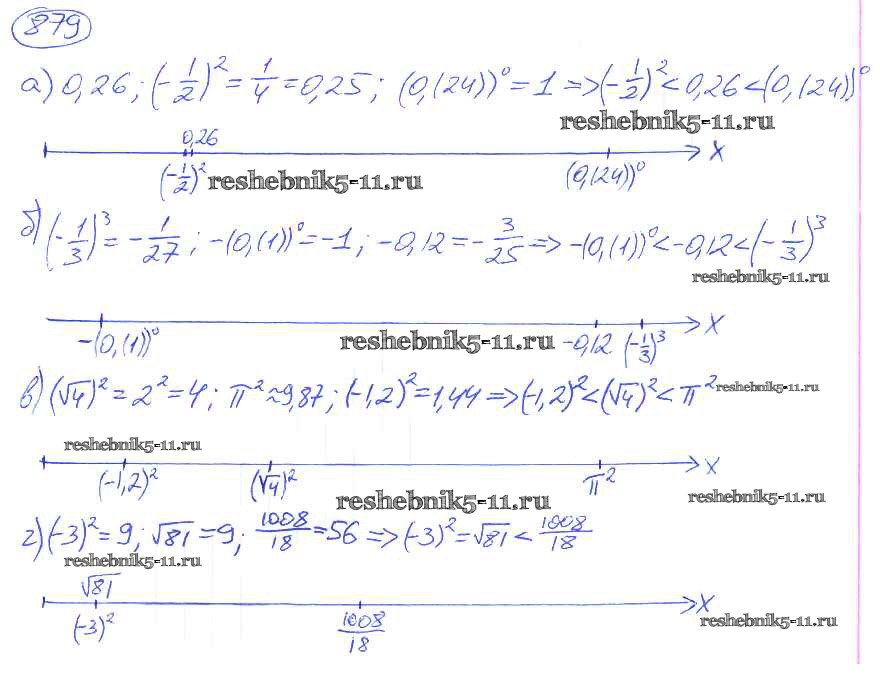 879
а) 0,26; (-1/2)² = 1/4 = 0,25; (0,(24))⁰ = 1 => (-1/2)² < 0,26 < (0,(24))⁰
reshebnik5-11.ru
0,26
x
(-1/2)² reshebnik5-11.ru (0,(24))⁰
б) (-1/3)³ = -1/27; -(0,(1))⁰ = -1; -0,12 = -3/25 => -(0,(1))⁰ < -0,12 < (-1/3)³
reshebnik5-11.ru
x
-(0,(1))⁰ reshebnik5-11.ru -0,12 (-1/3)³
в) (√4)² = 2² = 4; π² ≈ 9,87; (-1,2)² = 1,44 => (-1,2)² < (√4)² < π² reshebnik5-11.ru
reshebnik5-11.ru
x
(-1,2)² (√4)² π²
reshebnik5-11.ru reshebnik5-11.ru
г) (-3)² = 9; √81 = 9; 1008/18 = 56 => (-3)² = √81 < 1008/18
reshebnik5-11.ru
√81
x
(-3)² 1008/18 reshebnik5-11.ru